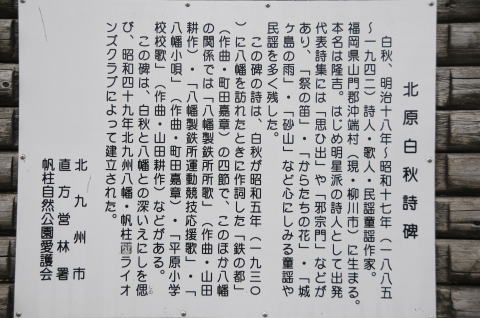 北原白秋詩碑
白秋、明治十八年～昭和十七年（一八八五
～一九四二）詩人・歌人・民謡童謡作家。
福岡県山門郡沖端村（現・柳川市）に生まる。
本名は隆吉。はじめ明星派の詩人として出発
代表詩集には「思ひ出」や「邪宗門」などが
あり、「祭の笛」・「からたちの花」・「城
ヶ島の雨」・「砂山」など心にしみる童謡や
民謡を多く残した。
この碑の詩は、白秋が昭和五年（一九三〇
）に八幡を訪れたときに作詞した「鉄の都」
（作曲・町田嘉章）の四節で、このほか八幡
の関係では「八幡製鉄所所歌」（作曲・山田
耕作）・「八幡製鉄所運動競技応援歌」・「
八幡小唄」（作曲・町田嘉章）・「平原小学
校校歌」（作曲・山田耕作）などがある。
この碑は、白秋と八幡との深いえにしを偲
び、昭和四十九年北九州八幡・帆柱西ライオ
ンズクラブによって建立された。
北九州市
直方営林署
帆柱自然公園愛護会